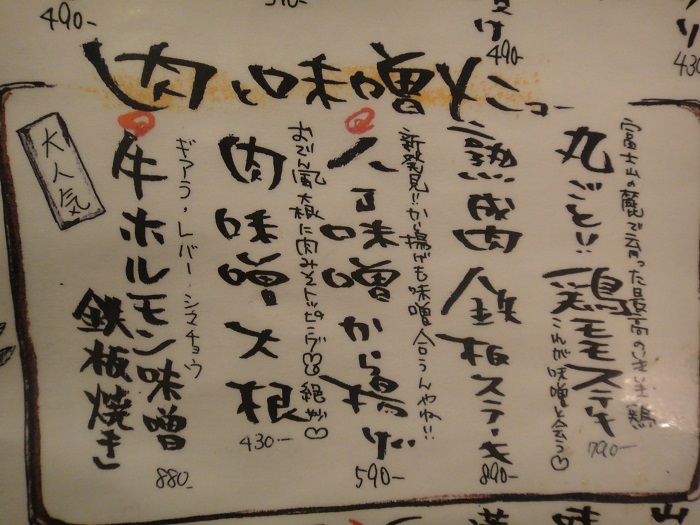 490-
490-
430
肉と味噌メニュー
富士山の麓で育った最高のいきいき鶏
丸ごと!!鶏モモステーキ
これが味噌と合う♡
790-
熟成肉鉄板ステーキ
890-
新発見!!から揚げも味噌合うんやね!!
八丁味噌から揚げ
590-
おでん風大根に肉みそトッピング♡絶妙♡
肉味噌大根
430-
ギアラ・レバー・シマチョウ
牛ホルモン味噌
鉄板焼き
880-
大人気